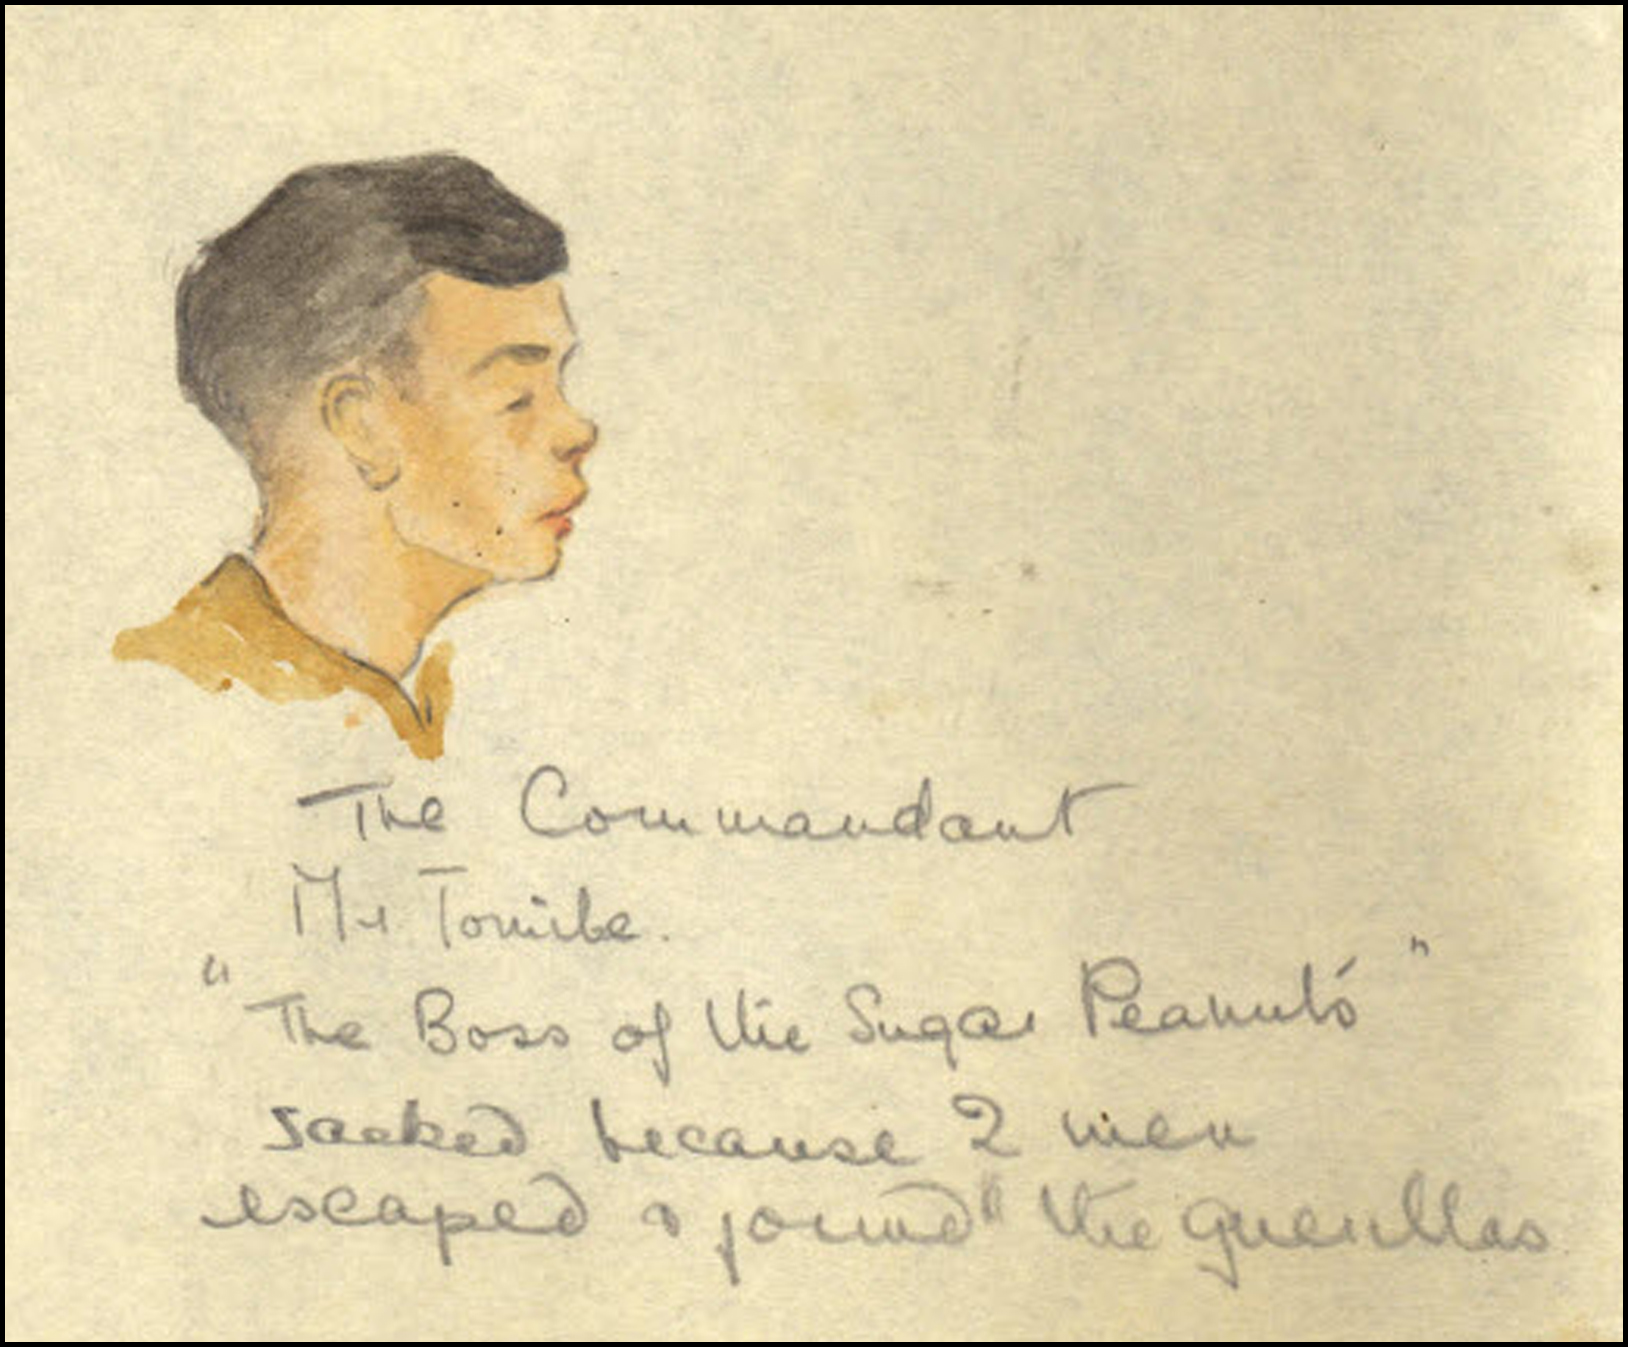 The Commandant
Mr Tomibe.
"The Boss of the Sugar Peanuts"
sacked because 2 men
escaped & joined the guerillas